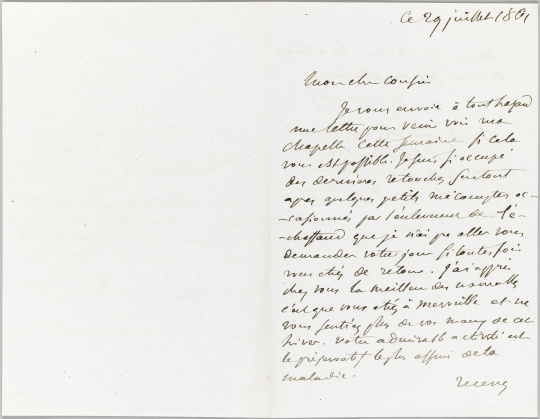 Ce 29 juillet 1861
Mon cher cousin
Je vous envoie à tout hazard
une lettre pour venir voir ma
chapelle cette semaine si cela
vous est possible. Je suis si occupé
des dernières retouches surtout
après quelques petits mécomptes oc-
-casionnés par l'enlèvement de l'é-
-chaffaud que je n'ai pu aller vous
demander votre jour si toutes fois
vous étiez de retour. J'ai appris
chez vous la meilleure des nouvelles
c'est que vous étiez à merveille et ne
vous sentiez plus de vos maux de cet
hiver. Votre admirable activité est
le préservatif le plus assuré de la
maladie.